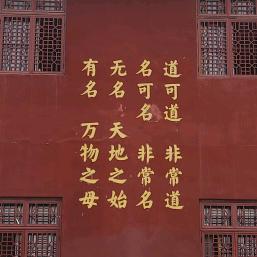 道可道 非常道
名可名 非常名
无名 天地之始
有名 万物之母